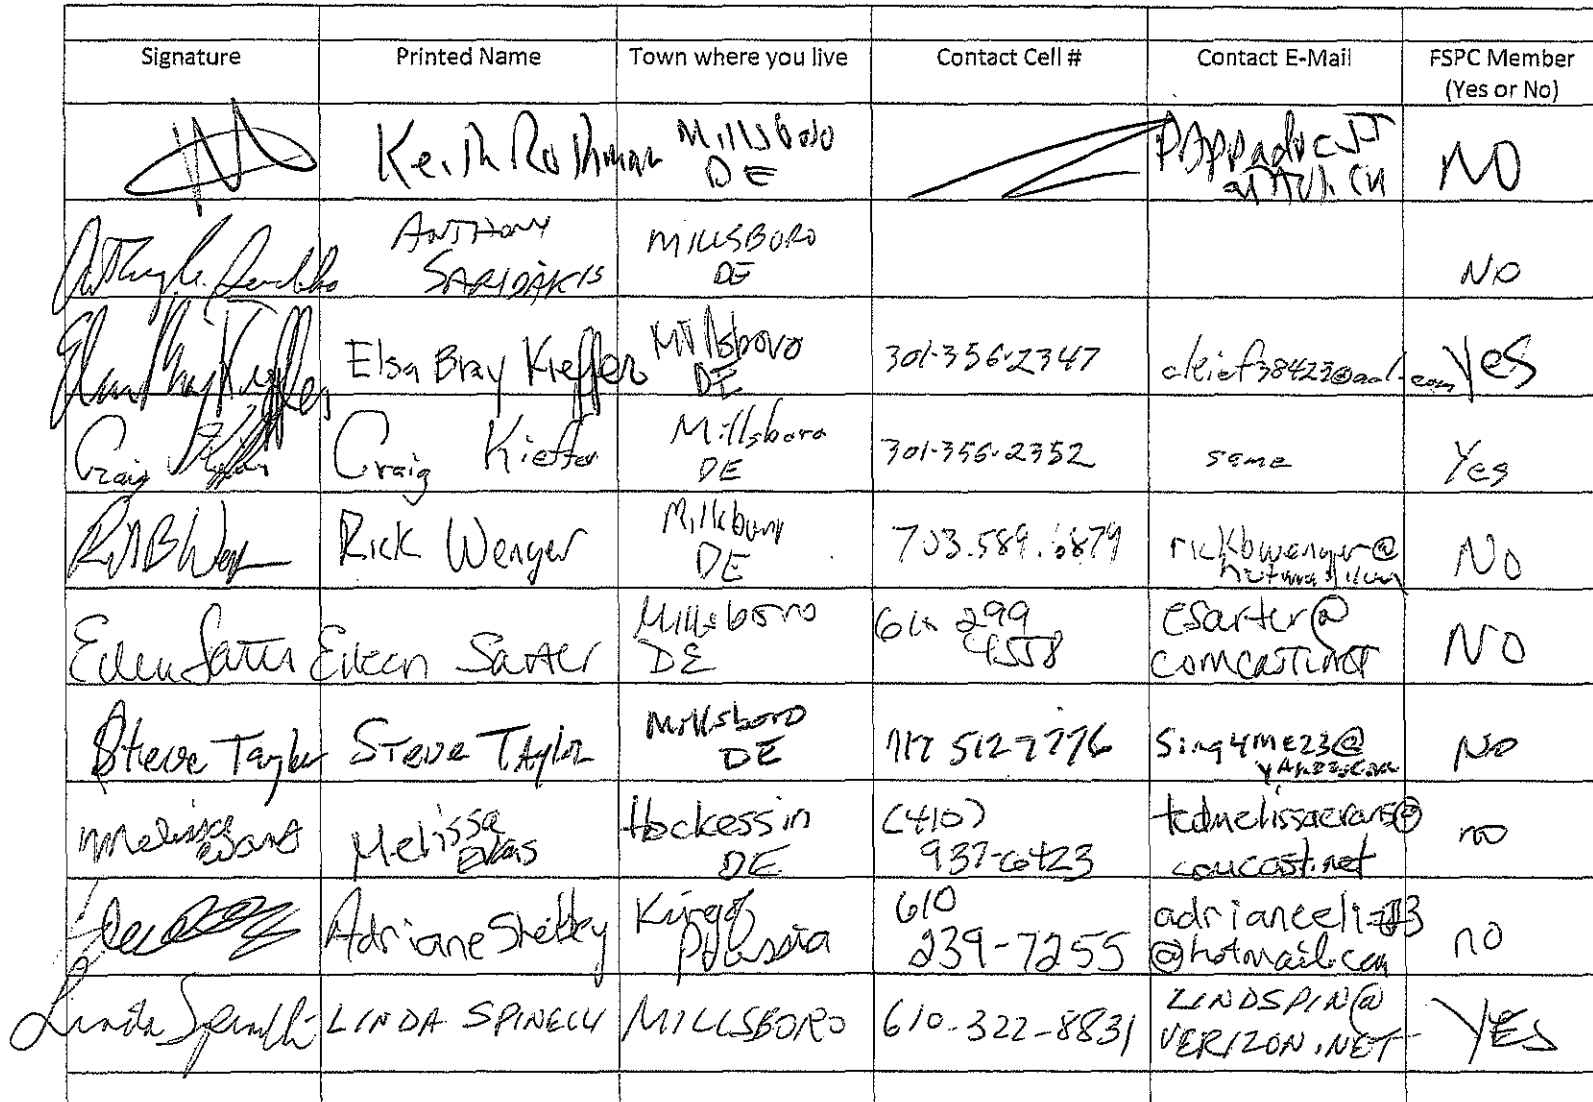 Signature Printed Name Town where you live Contact Cell # Contact E-Mail FSPC Member
(Yes or No)
Keith Rothman Millsboro
DE NO
ANTHONY
SARIDAKIS MILLSBORO
DE NO
Elsa Bray Kieffer Millsboro
DE 301-356-2347 Yes
Craig Kieffer Craig Kieffer Millsboro
DE 301-356-2352 same Yes
Rick Wenger DE 703.589.6879 rickbwenger@
hotmail.com No
Eileen Sarter Eileen Sarter Millsboro
DE 299
4558 esarter@
comcast.net NO
Steve Taylor STEVE TAYlOR Millsboro
DE 717 512 7776 Sing4ME23@
yAhoo.com NO
Melissa Evans Melissa
Evans Hockessin
DE (410)
937-6423 tedmelissaevans@
comcast.net no
Adriane Shelley King of
Prussia 610
239-7255 @hotmail.com no
Linda Spinelli LINDA SPINELLI MILLSBORO 610-322-8831 LINDSPIN@
VERIZON.NET YES